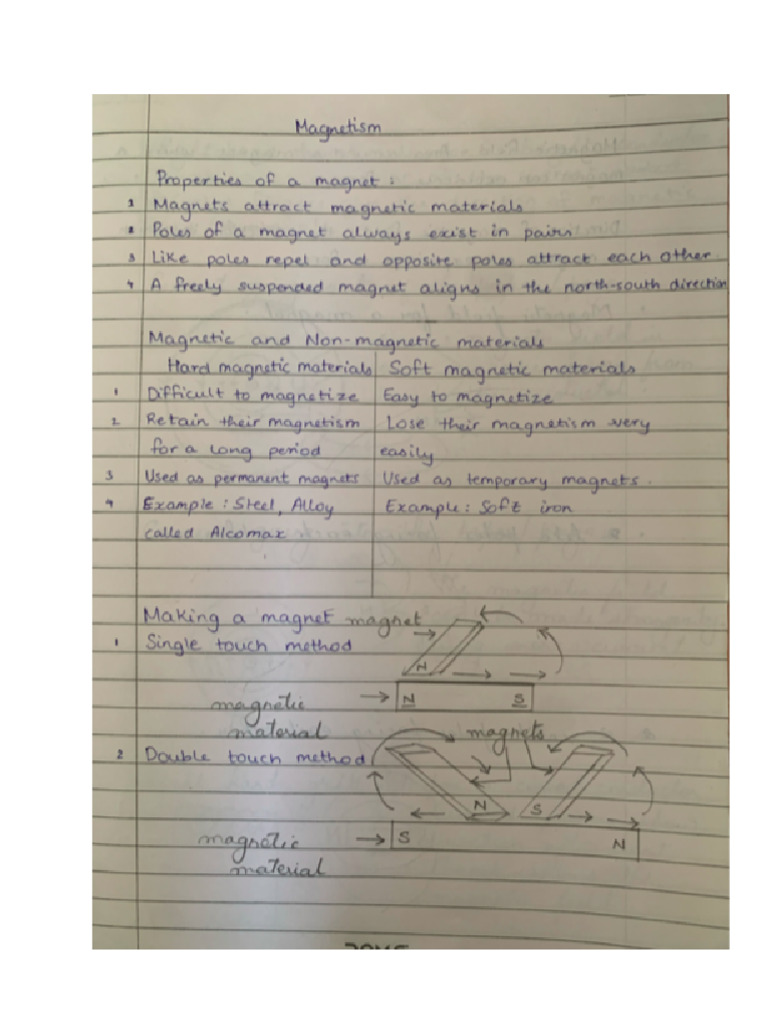 Magnetism
Properties of a magnet :
1 Magnets attract magnetic materials
2 Poles of a magnet always exist in pairs
3 Like poles repel and opposite poles attract each other.
4 A freely suspended magnet aligns in the north-south direction
Magnetic and Non-magnetic materials
Hard magnetic materials Soft magnetic materials
1 Difficult to magnetize Easy to magnetize
2 Retain their magnetism Lose their magnetism very
for a long period easily
3 Used as permanent magnets Used as temporary magnets.
4 Example : Steel, Alloy Example : Soft iron
called Alcomax
Making a magnet magnet
1 Single touch method
N
magnetic N S
material magnets
2 Double touch method
N S
magnetic S N
material